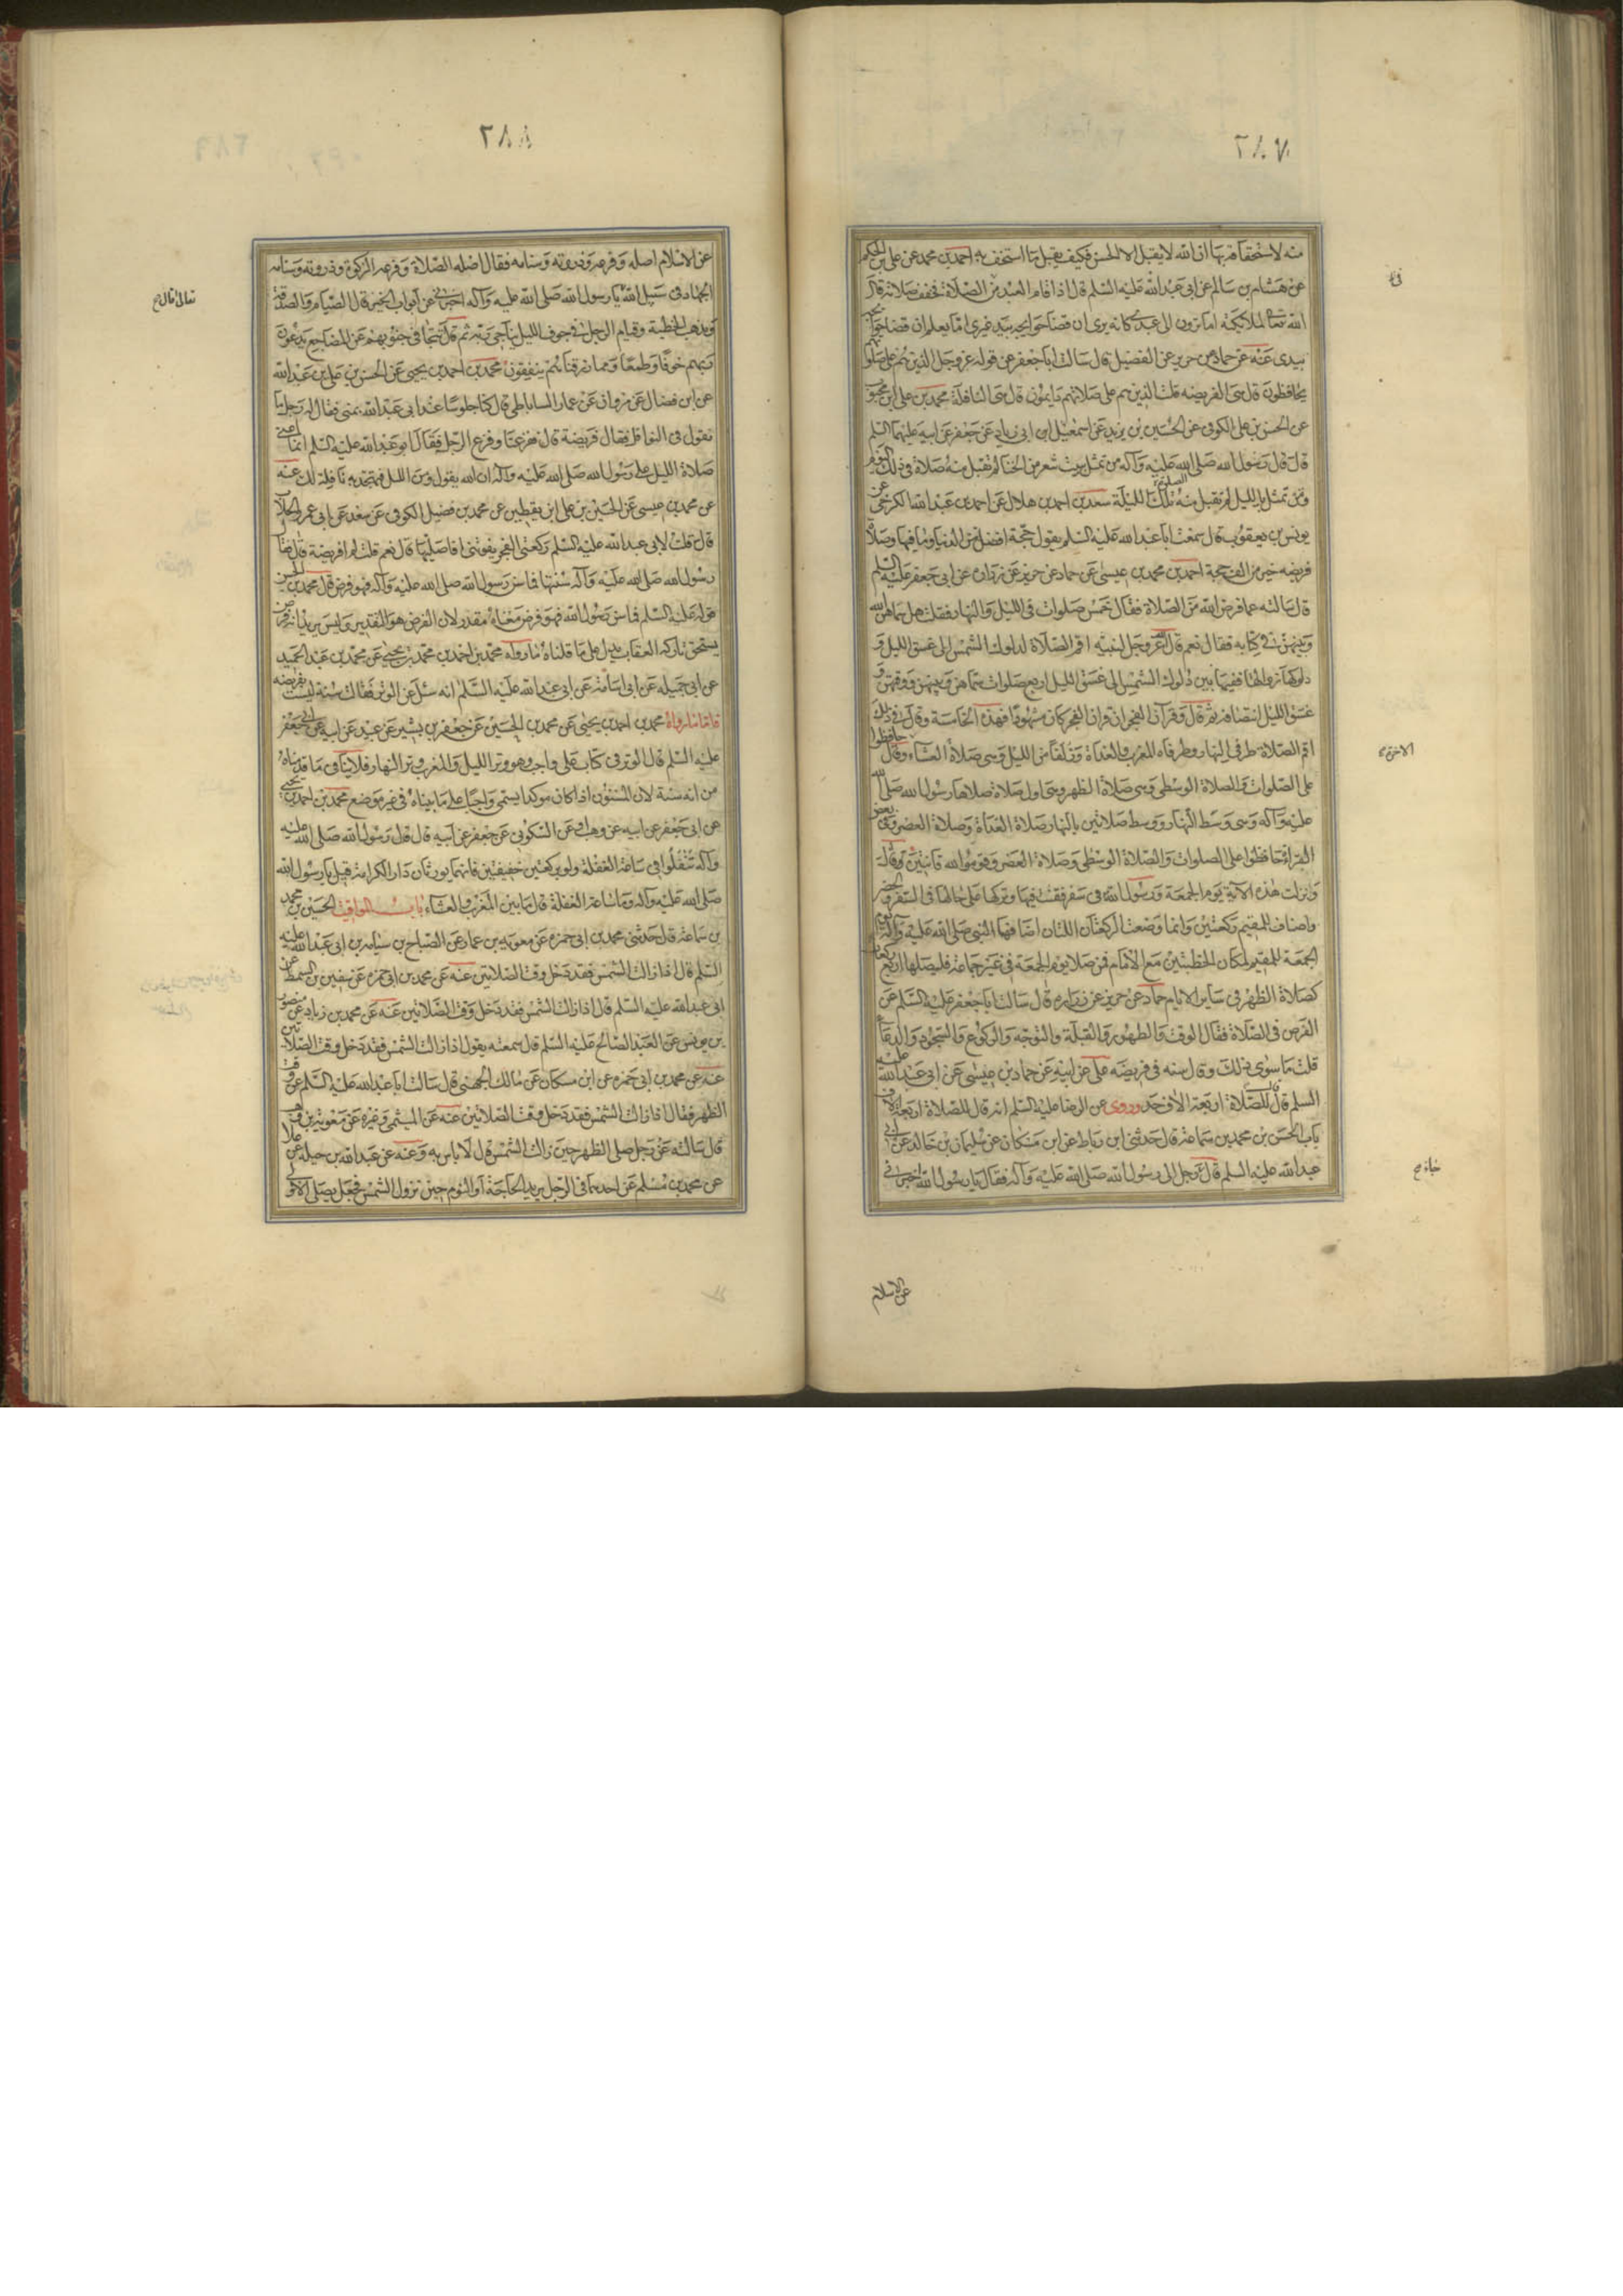 ٢٨٧
منه لاستخفافه بها ان الله لا يقبل الا الحسن فكيف يقبل ما استخف به احمد بن محمد عن علي بن الحكم
عن هشام بن سالم عن ابي عبد الله عليه السلم قال اذا قام العبد من الصلاة فخفف صلاته قال
الله تعالى لملائكته اما ترون الى عبدي كانه يرى ان قضاء حوايجه بيد غيري اما يعلم ان قضاء حوايجه
بيدي عنه عن حماد عن حريز عن الفضيل قال سالت ابا جعفر عن قوله عز وجل الذين هم على صلواتهم
يحافظون قال هي الفريضه قلت الذين هم على صلاتهم دايمون قال هي النافلة محمد بن علي بن محبوب
عن الحسن بن علي الكوفي عن الحسين بن يزيد عن اسمعيل ابن ابي زياد عن جعفر عن ابيه عليهما السلم
قال قال رسول الله صلى الله عليه وآله من تمثل ببيت شعر من الخنا لم تقبل منه صلاة في ذلك اليوم
ومن تمثل بالليل لم تقبل منه تلك الليلة سعد بن احمد بن هلال عن احمد بن عبد الله الكرخي عن
يونس بن يعقوب قال سمعت ابا عبد الله عليه السلم يقول حجة افضل من الدنيا وما فيها وصلاة
فريضه خير من الف حجة احمد بن محمد بن عيسى عن حماد عن حريز عن زراره عن ابي جعفر عليه السلم
قال سالته عما فرض الله من الصلاة فقال خمس صلوات في الليل والنهار فقلت هل سماهن الله
وبينهن في كتابه فقال نعم قال الله عز وجل لنبيه اقم الصلاة لدلوك الشمس الى غسق الليل و
دلوكها زوالها ففيما بين دلوك الشمس الى غسق الليل اربع صلوات سماهن وبينهن ووقتهن و
غسق الليل انتصافه ثم قال وقرآن الفجر ان قرآن الفجر كان مشهودا فهذه الخامسة وقال في ذلك
اقم الصلاة طرفي النهار وطرفاه المغرب والغداة وزلفا من الليل وهي صلاة العشاء وقال حافظوا
على الصلوات والصلاة الوسطى وهي صلاة الظهر وهي اول صلاة صلاها رسول الله صلى الله
عليه وآله وهي وسط النهار ووسط صلاتين بالنهار صلاة الغداة وصلاة العصر وفي بعض
القراءة حافظوا على الصلوات والصلاة الوسطى وصلاة العصر وقوموا لله قانتين وقال
ونزلت هذه الآية يوم الجمعة ورسول الله في سفر فقنت فيها وتركها على حالها في السفر والحضر
واضاف للمقيم ركعتين وانما وضعت الركعتان اللتان اضافهما النبي صلى الله عليه وآله يوم
الجمعة للمقيم لمكان الخطبتين مع الامام فمن صلا يوم الجمعة في غير جماعة فليصلها اربع ركعات
كصلاة الظهر في ساير الايام حماد عن حريز عن زراره قال سالت ابا جعفر عليه السلم عن
الفرض في الصلاة فقال الوقت والطهور والقبلة والتوجه والركوع والسجود والدعاء
قلت ما سوى ذلك وقال سنه في فريضه علي عن ابيه عن حماد بن عيسى عن ابي عبد الله عليه
السلم قال للصلاة اربعة الاف حد وروي عن الرضا عليه السلم انه قال للصلاة اربعة الاف
باب الحسن بن محمد بن سماعة قال حدثني ابن رباط عن ابن مسكان عن سليمان بن خالد عن ابي
عبد الله عليه السلم قال رجل الى رسول الله صلى الله عليه وآله فقال يا رسول الله اخبرني
عن الاسلام
٢٨٨
عن الاسلام اصله وفرعه وذروته وسنامه فقال اصله الصلاة وفرعه الزكوة وذروته وسنامه
الجهاد في سبيل الله يا رسول الله صلى الله عليه وآله اخبرني عن ابواب الخير قال الصيام والصدقة
ويذهب الخطيئة وقيام الرجل في جوف الليل يناجي ربه ثم قال تتجافى جنوبهم عن المضاجع يدعون
ربهم خوفا وطمعا ومما رزقناهم ينفقون محمد بن احمد بن يحيى عن الحسن بن علي بن عبد الله
عن ابن فضال عن مروان عن عمار الساباطي قال كنا جلوسا عند ابي عبد الله بمنى فقال له رجل ما
تقول في النوافل فقال فريضة قال ففزعنا وفزع الرجل فقال ابو عبد الله عليه السلم انما اعني
صلاة الليل على رسول الله صلى الله عليه وآله ان الله يقول ومن الليل فتهجد به نافلة لك عنه
عن محمد بن عيسى عن الحسين بن علي ابن يقطين عن محمد بن فضيل الكوفي عن سعد عن ابي عمرو الجلاب
قال قلت لابي عبد الله عليه السلم ركعتي الفجر يفوتني افاصليها قال نعم قلت لم افريضة قال فقال
رسول الله صلى الله عليه وآله سنتها فما سن رسول الله صلى الله عليه وآله فهو فرض قال محمد بن الحسن
قوله عليه السلم فما سن رسول الله فهو فرض معناه مقدر لان الفرض هو التقدير وليس يريد انه فرض
يستحق تاركه العقاب يدل على ما قلناه ما رواه محمد بن احمد بن محمد بن يحيى عن محمد بن عبد الحميد
عن ابي جميله عن ابي اسامة عن ابي عبد الله عليه السلام انه سئل عن الوتر فقال سنة ليست بفريضه
فاما ما رواه محمد بن احمد بن يحيى عن محمد بن الحسين عن جعفر بن بشير عن عبيد عن ابيه عن ابي جعفر
عليه السلم قال الوتر في كتاب علي واجب وهو وتر الليل والمغرب وتر النهار فلا ينافي ما قدمناه
من انه سنة لان المسنون اذا كان موكدا يسمى واجبا على ما بيناه في غير موضع محمد بن احمد بن يحيى
عن ابي جعفر عن ابيه عن وهب عن السكوني عن جعفر عن ابيه قال قال رسول الله صلى الله عليه
وآله تنفلوا في ساعة الغفلة ولو بركعتين خفيفتين فانهما يورثان دار الكرامة قيل يا رسول الله
صلى الله عليه وآله وما ساعة الغفلة قال ما بين المغرب والعشاء باب المواقيت الحسين بن محمد
بن سماعة قال حدثني محمد بن ابي حمزه عن معويه بن عمار عن الصباح بن سيابه بن ابي عبد الله عليه
السلم قال اذا زالت الشمس فقد دخل وقت الصلاتين عنه عن محمد بن ابي حمزه عن سفين بن السمط عن
ابي عبد الله عليه السلم قال اذا زالت الشمس فقد دخل وقت الصلاتين عنه عن محمد بن زياد عن منصور
بن يونس عن العبد الصالح عليه السلم قال سمعته يقول اذا زالت الشمس فقد دخل وقت الصلاتين
عنه عن محمد بن ابي حمزه عن ابن مسكان عن مالك الجهني قال سالت ابا عبد الله عليه السلم عن وقت
الظهر فقال اذا زالت الشمس فقد دخل وقت الصلاتين عنه عن الميثمي وغيره عن معوية بن وهب
قال سالته عن رجل صلى الظهر حين زالت الشمس قال لا باس به وعنه عن عبد الله بن جبلة عن علا
عن محمد بن مسلم عن احدهما في الرجل يريد الحاجة او النوم حين تزول الشمس فجعل يصلي الاولى